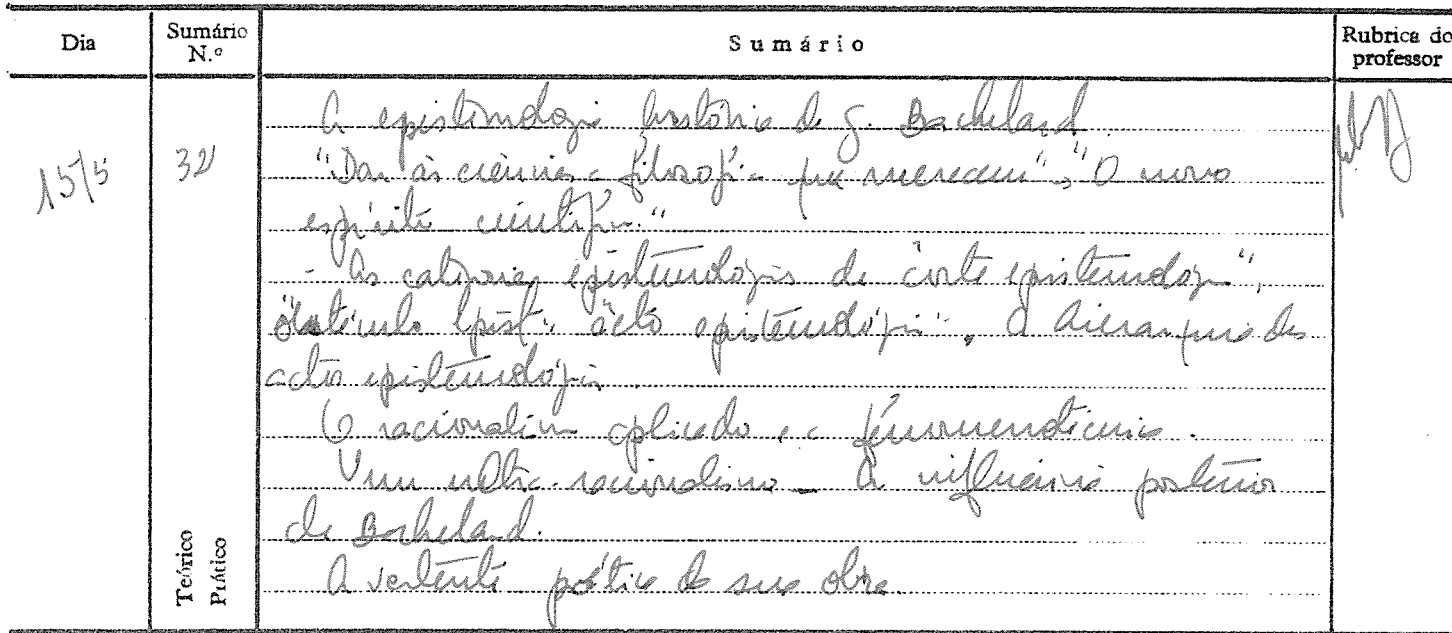 Dia
Sumário N.º
Sumário
Rubrica do professor
15/5
32
A epistemologia histórica de G. Bachelard.
"Dar às ciências a filosofia que merecem", "O novo
espírito científico."
- As categorias epistemológicas de "corte epistemológico",
"obstáculo epist.", "acto epistemológico". A hierarquia dos
actos epistemológicos.
O racionalismo aplicado e a fenomenotécnica.
Um ultra-racionalismo - A influência posterior
de Bachelard.
A vertente poética da sua obra.
Teórico
Prático